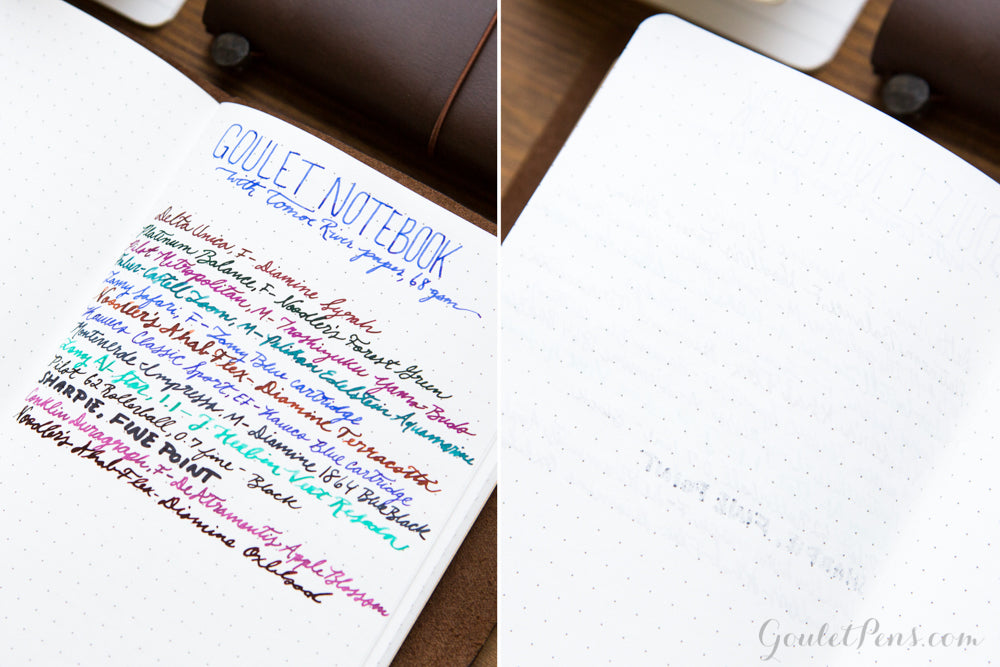 GOULET NOTEBOOK
with Tomoe River paper, 68 gsm
Delta Unica, F - Diamine Syrah
Platinum Balance, F - Noodler's Forest Green
Pilot Metropolitan, M - Iroshizuku Yama-Budo
Faber-Castell Loom, M - Pelikan Edelstein Aquamarine
Lamy Safari, F - Lamy Blue cartridge
Noodler's Ahab Flex - Diamine Terracotta
Kaweco Classic Sport, EF - Kaweco Blue cartridge
Monteverde Impressa, M - Diamine 1864 Blue Black
Lamy Al-Star, 1.1 - J. Herbin Vert Reseda
Pilot G2 Rollerball 0.7 fine - Black
SHARPIE, FINE POINT
Conklin Duragraph, F - De Atramentis Apple Blossom
Noodler's Ahab Flex - Diamine Oxblood
GouletPens.com